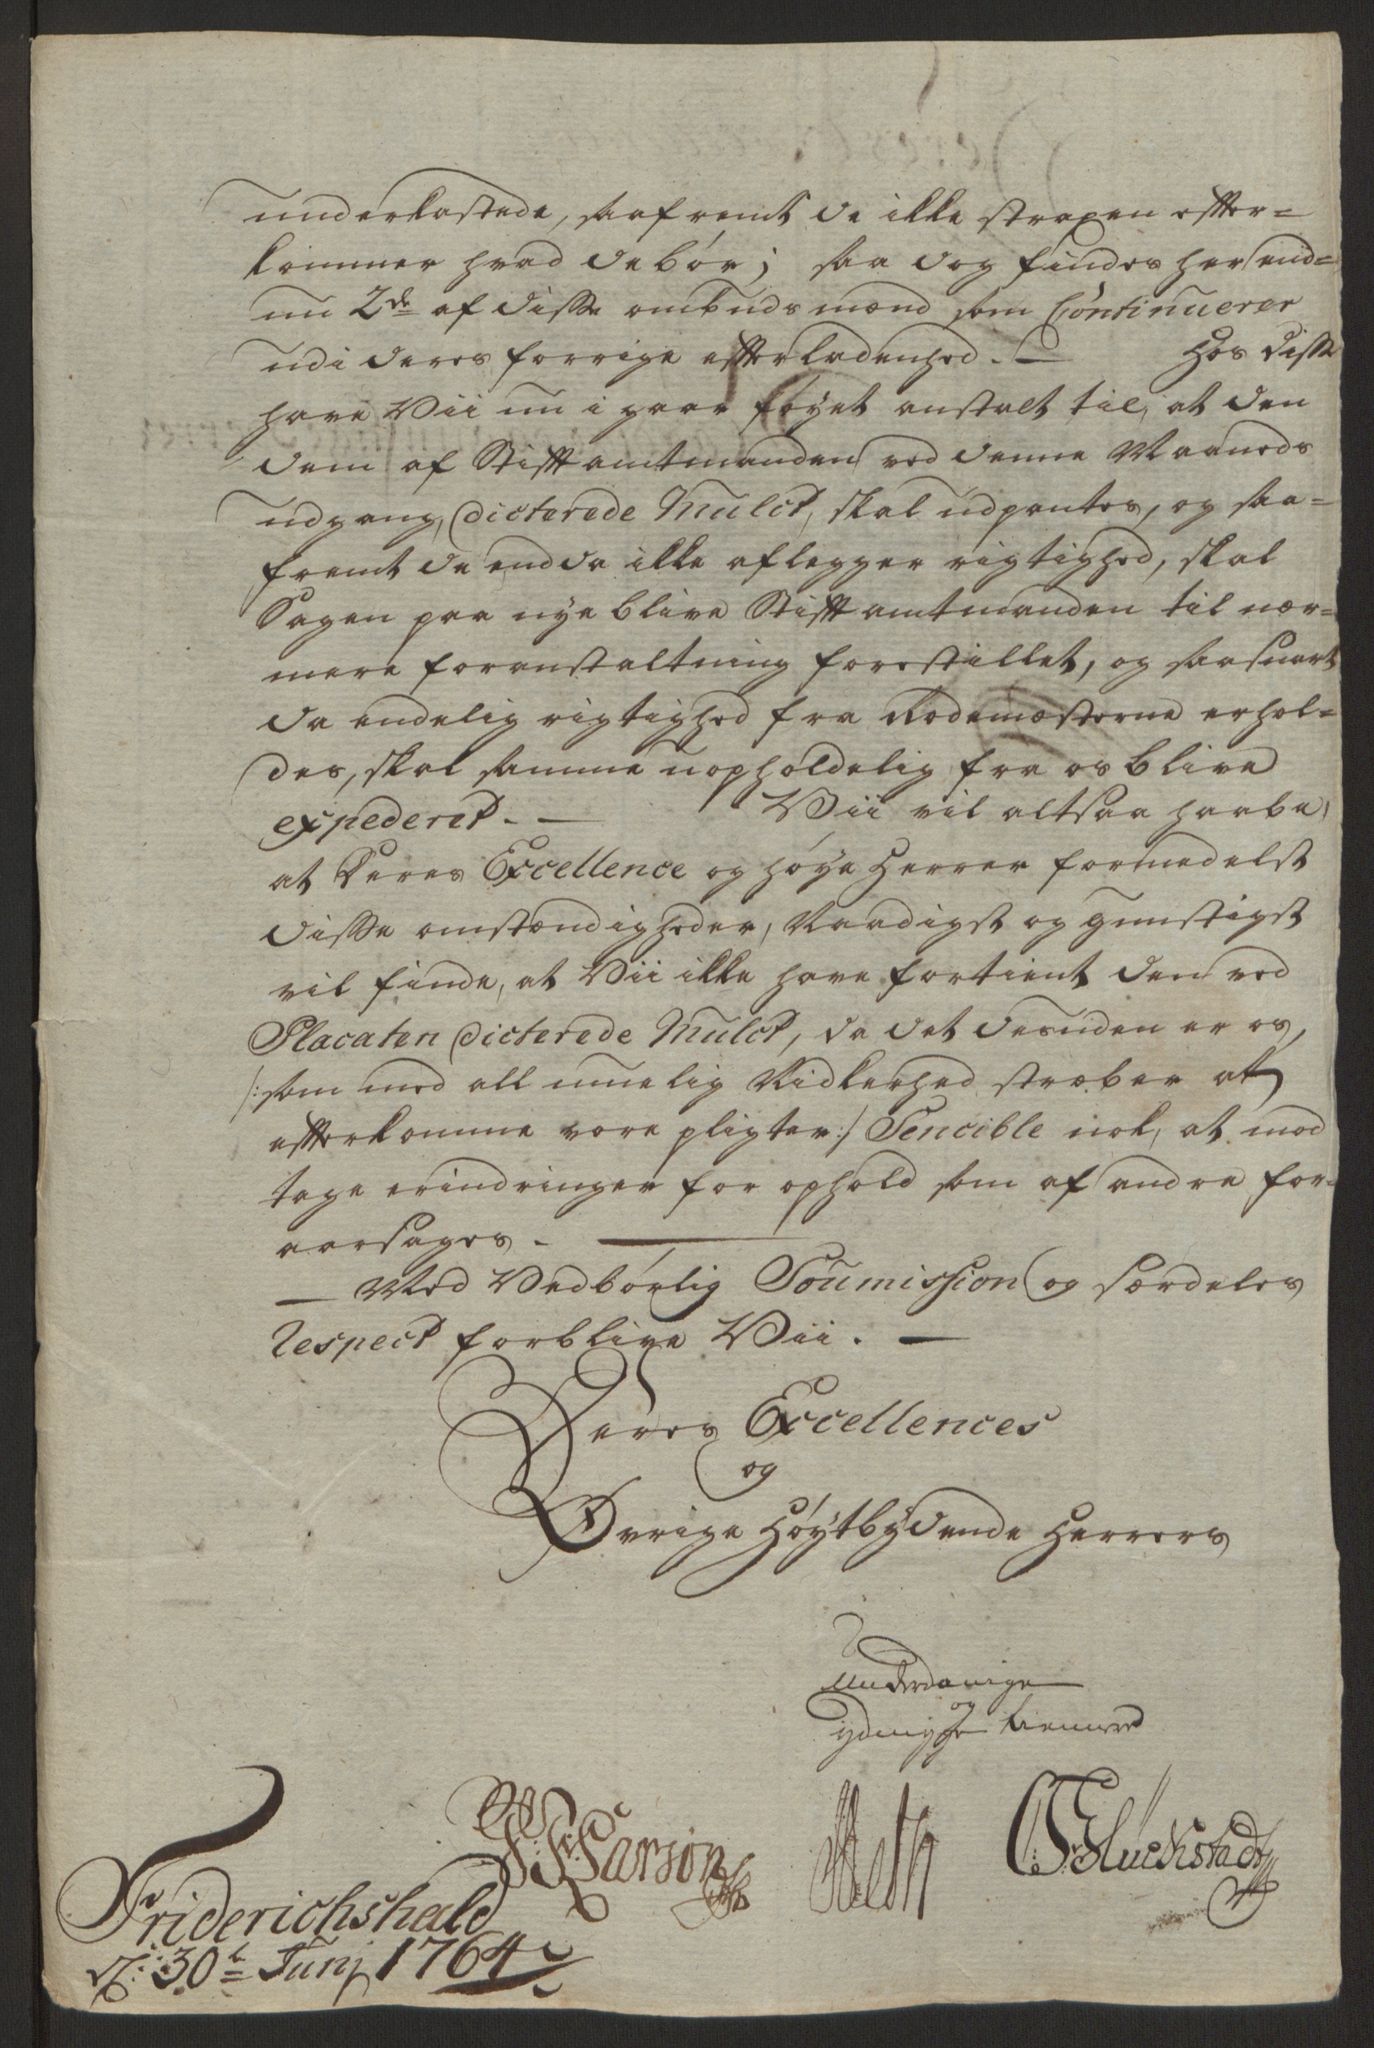 underkastede, saafremt de ikke straxen effter=
kommer hvad de bör; saa dog findes her end=
nu 2de af disse ombudsmænd som Continuerer
udi deres forrige effterladenhed. — Hos disse
have Vii nu i gaar föyet anstalt til, at den
dem af Stifftamtmanden ved denne Maaneds
udgang, dicterede Mulct, skal udpantes, og saa=
fremt de endda ikke aflegger rigtighed, skal
Sagen paa nye blive Stifftamtmanden til nær=
mere foranstaltning forestillet, og saasnart
da endelig rigtighed fra Rodemesterne erhol=
des, skal samme uopholdelig fra os blive
expederet. — Vii vil altsaa haabe,
at Deres Excellence og höye Herrer formedelst
disse omstændigheder, Naadigst og gunstigst
vil finde, at Vii ikke have fortient den ved
Placaten dicterede Mulct, da det desuden er os,
/: som med all muelig Nidkerhed stræber at
effterkomme vore pligter :/ Sencible nok, at mod
tage erindringer for ophold som af andre for=
aarsages. —
— Med Vedbörlig Soumission og særdeles
Respect forblive Vii. —
Deres Excellences
og
Øvrige Höytbydende Herrers
Underdanige
og
ydmyge tienere
Carson
Gluckstadt
Friderichshald
d: 30te Junj 1764